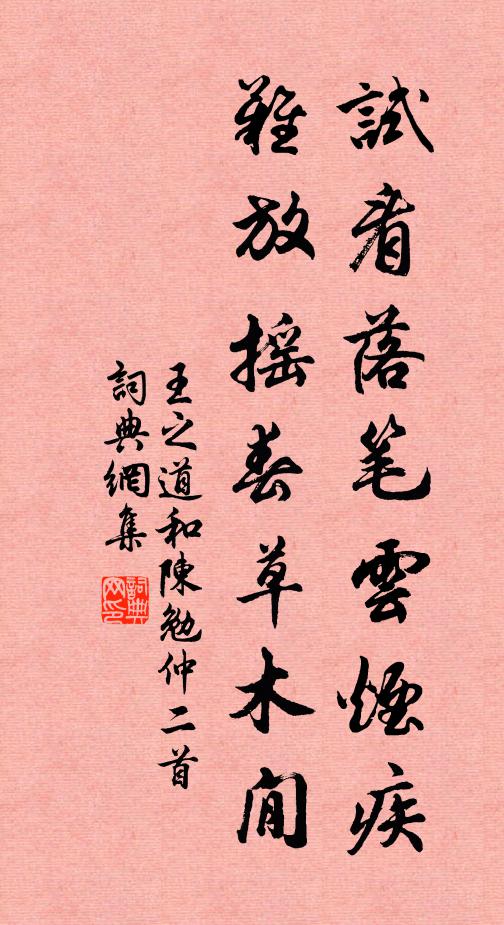 試看落笔雲煙疾
難放摇春草木閒
王之道和陳勉仲二首
詞典網集
詞典网印